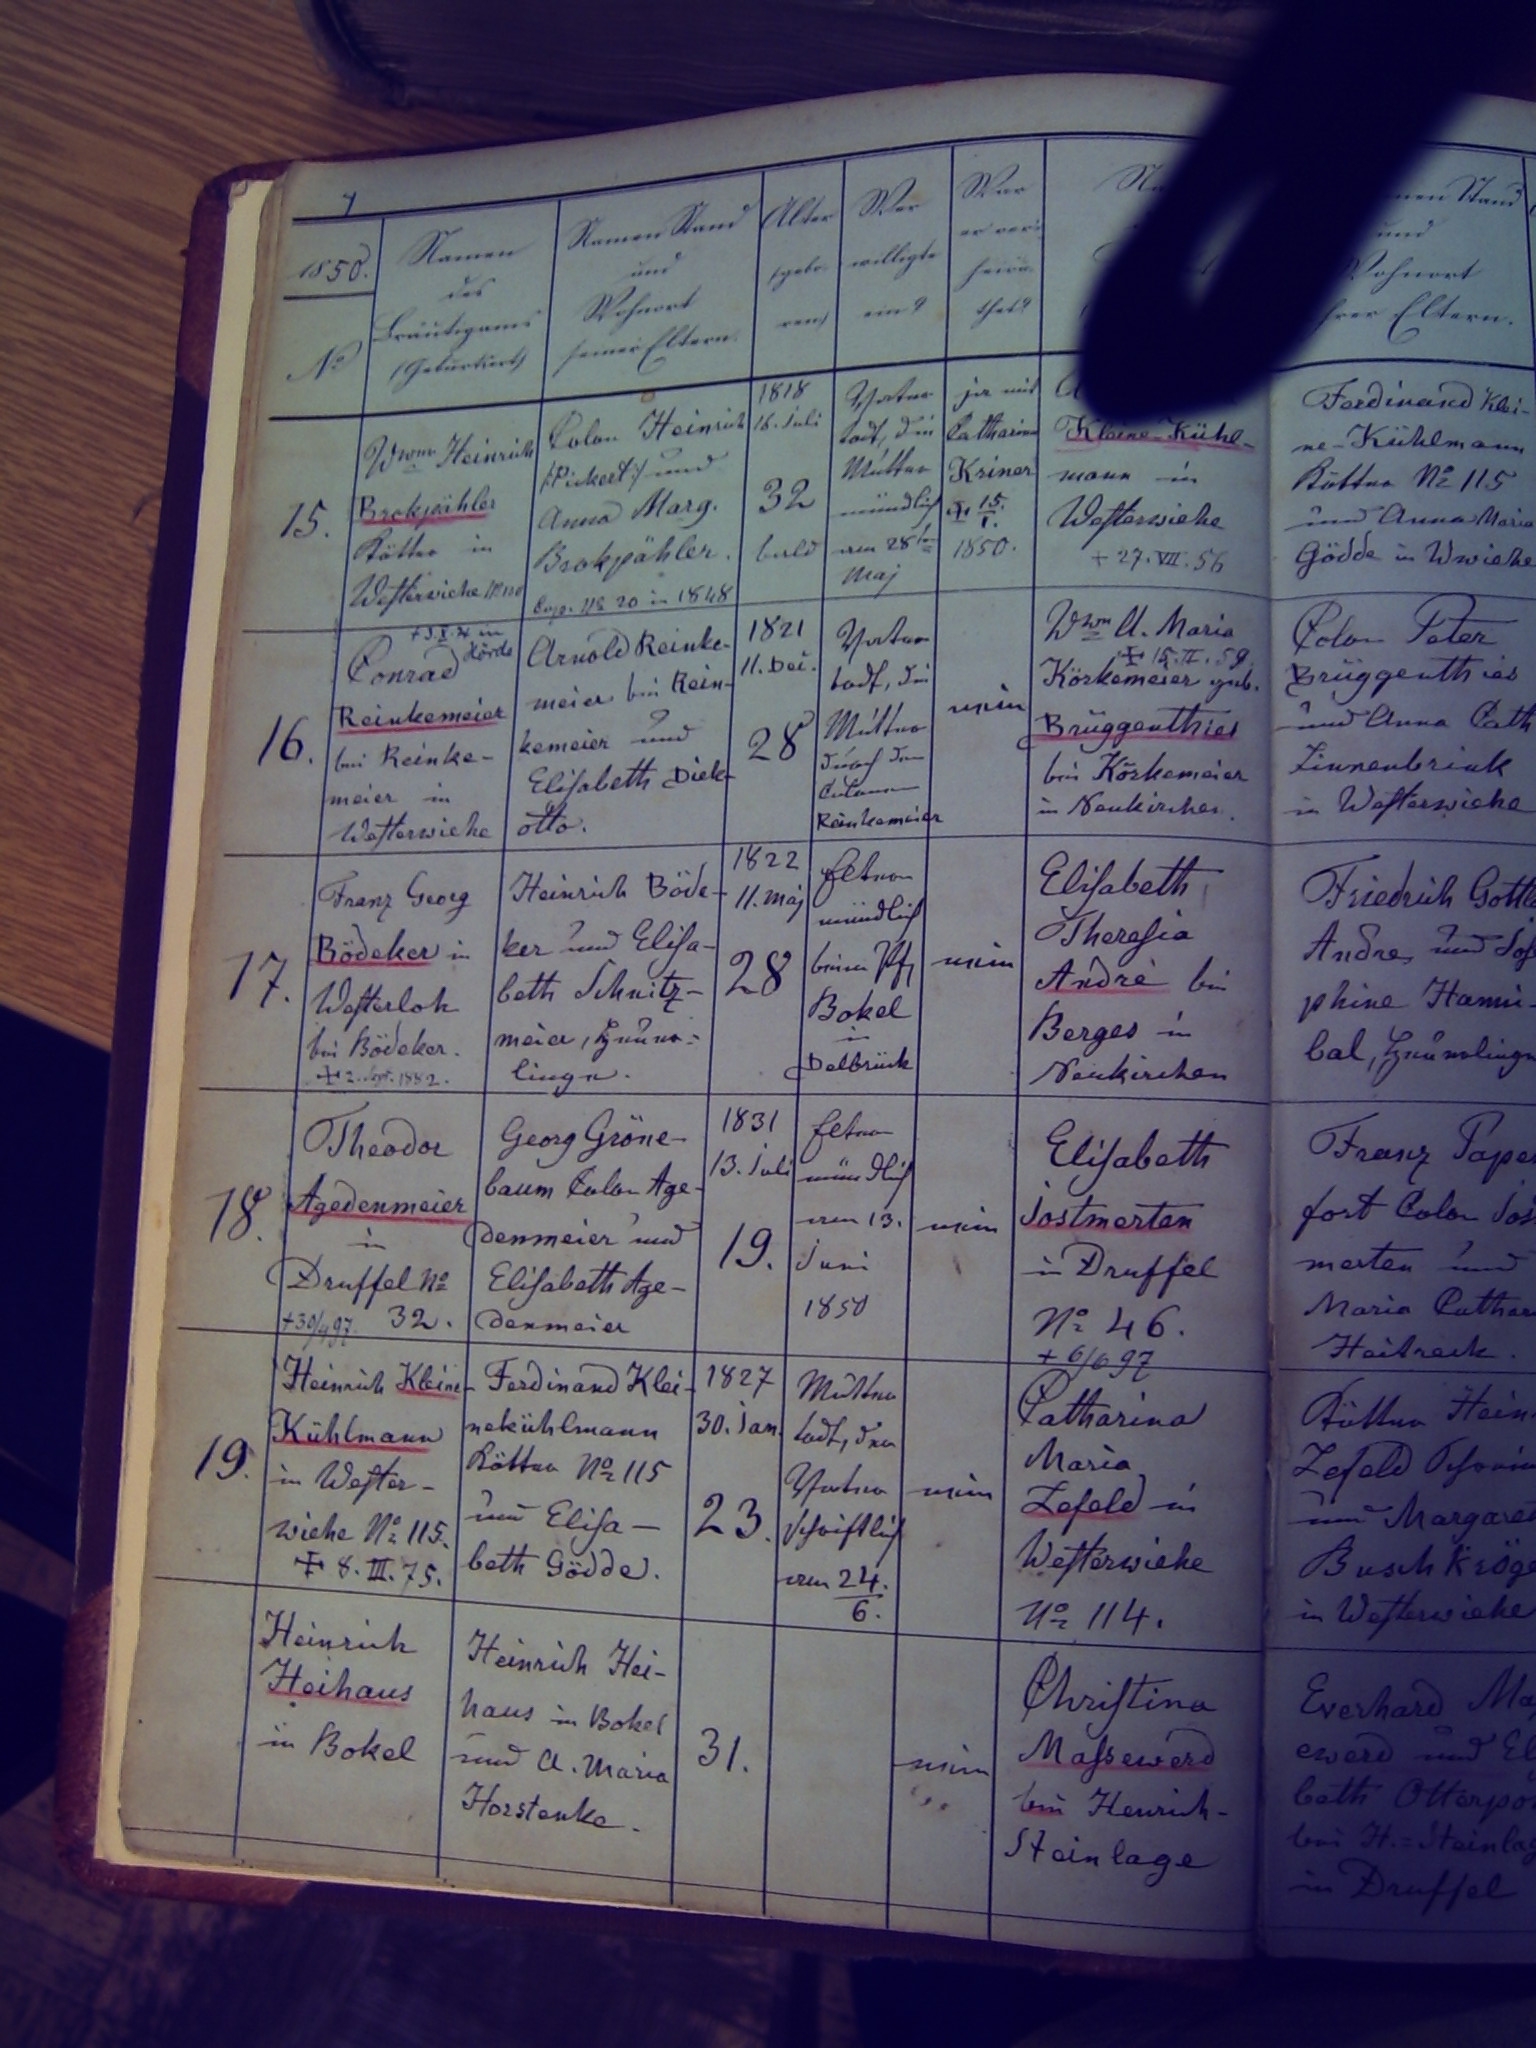 1850.
No
Namen
des
Bräutigams
(Geburtsort)
Namen Stand
und
Wohnort
seiner Eltern.
Alter
(gebo-
ren)
Wer
willigte
ein?
War
er verh-
heira-
thet?
Na
men Stand
und
Wohnort
ihrer Eltern.
15.
Wwer Heinrich
Brokpähler
Kötter in
Westerwiehe
Colon Heinrich
Pickert und
Anna Marg.
Brokpähler.
Cop. No 20 in 1848
1818
16. Juli
32
bald
Vater
todt, die
Mutter
mündlich
am 28ten
Maj
ja mit
Catharina
Kriner
+ 15.
1.
1850.
Kleine-Kühl-
mann in
Westerwiehe
+ 27. VII. 56
Ferdinand Klei-
ne-Kühlmann
Kötter No 115
und Anna Maria
Gödde in Wwiehe
16.
Conrad
Reinkemeier
bei Reinke-
meier in
Westerwiehe
Arnold Reinke-
meier bei Rein-
kemeier und
Elisabeth Diek-
otto.
1821
11. Dec.
28
Vater
todt, die
Mutter
durch den
Colonen
Reinkemeier
nein
Wwe A. Maria
+ 15. II. 59.
Körkemeier geb.
Brüggenthies
bei Körkemeier
in Neukirchen.
Colon Peter
Brüggenthies
und Anna Cath
Zinnenbrink
in Westerwiehe
17.
Franz Georg
Bödeker in
Westerloh
bei Bödeker.
+ 2. Sept. 1882.
Heinrich Böde-
ker und Elisa-
beth Schnitz-
meier, Heuer-
linge.
1822
11. Maj
28
Eltern
mündlich
beim Pf.
Bokel
in
Delbrück
nein
Elisabeth
Theresia
André bei
Berges in
Neukirchen
Friedrich Gottl
Andre, und Jos
phine Hanni-
bal, Heuerlinge
18.
Theodor
Agedenmeier
in
Druffel No
32.
+30/4 97.
Georg Gröne-
baum Colon Age-
denmeier und
Elisabeth Age-
denmeier
1831
13. Juli
19.
Eltern
mündlich
am 13.
Juni
1850
nein
Elisabeth
Jostmerten
in Druffel
No 46.
+ 6/6 97
Franz Pape
fort Colon Jos
merten und
Maria Cathar
Heitreck.
19.
Heinrich Kleine-
Kühlmann
in Wester-
wiehe No 115.
+ 8. III. 75.
Ferdinand Klei-
nekühlmann
Kötter No 115
und Elisa-
beth Gödde.
1827
30. Jan.
23.
Mutter
todt, der
Vater
schriftlich
am 24.
6.
nein
Catharina
Maria
Lefeld in
Westerwiehe
No 114.
Kötter Hein
Lefeld
und Margare
Busch Kröge
in Westerwiehe
Heinrich
Heihaus
in Bokel
Heinrich Hei-
haus in Bokel
und A. Maria
Horstenke.
31.
nein
Christina
Massewerd
bei Henrich-
Steinlage
Everhard Mas
ewerd und El
beth Otterpo
bei H.=Steinlag
in Druffel